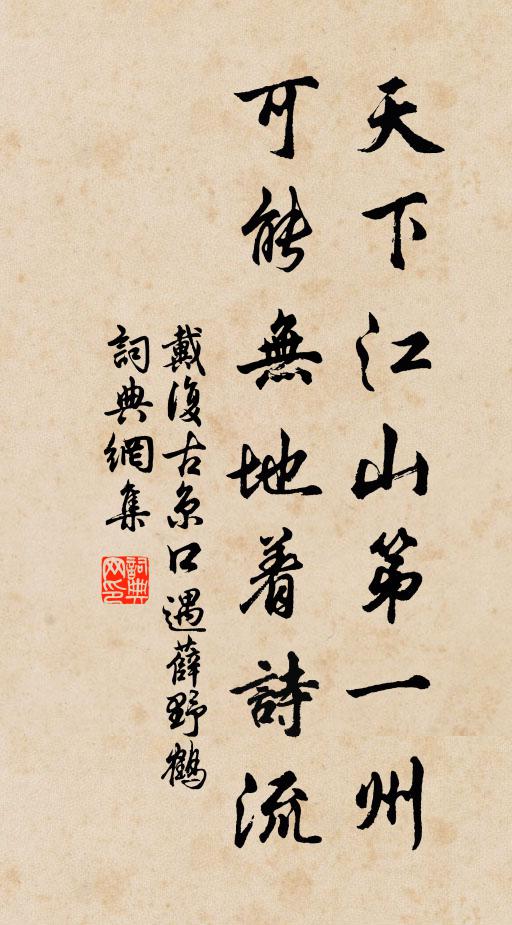 天下江山第一州
可能無地着詩流
戴復古京口遇薛野鶴
詞典網集
詞典網印